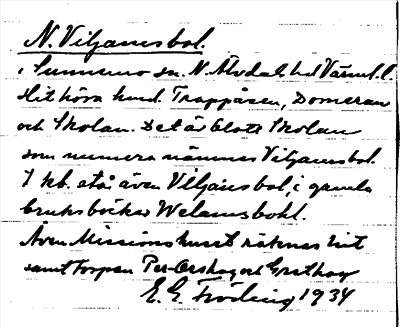 N. Viljamsbol.
i Sunnemo sn. N. Älvdals hd Värml. l.
Hit höra hmd. Trappåsen, Domeran
och Skolan. Det är blott Skolan
som numera nämnes Viljamsbol.
I kb. stå även Viljansbol, i gamla
bruksböcker Welamsbohl.
Även Missionshuset räknas hit
samt torpen Per-Ers hag och Grethag
E. G. Fröding 1934